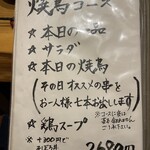 焼鳥コース
☆ 本日の一品
☆ サラダ
☆ 本日の焼鳥
(その日オススメの串を
お一人様七本お出しします)
☆ 鶏スープ
※コースに
+300円で
2680円